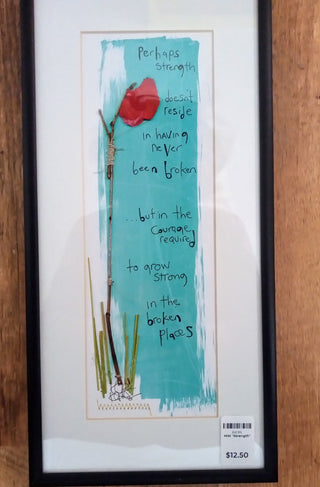 Perhaps
Strength
doesn't
reside
in having
never
been broken
...but in the
Courage
required
to grow
Strong
in the
broken
places
Mini "Strength"
$12.50